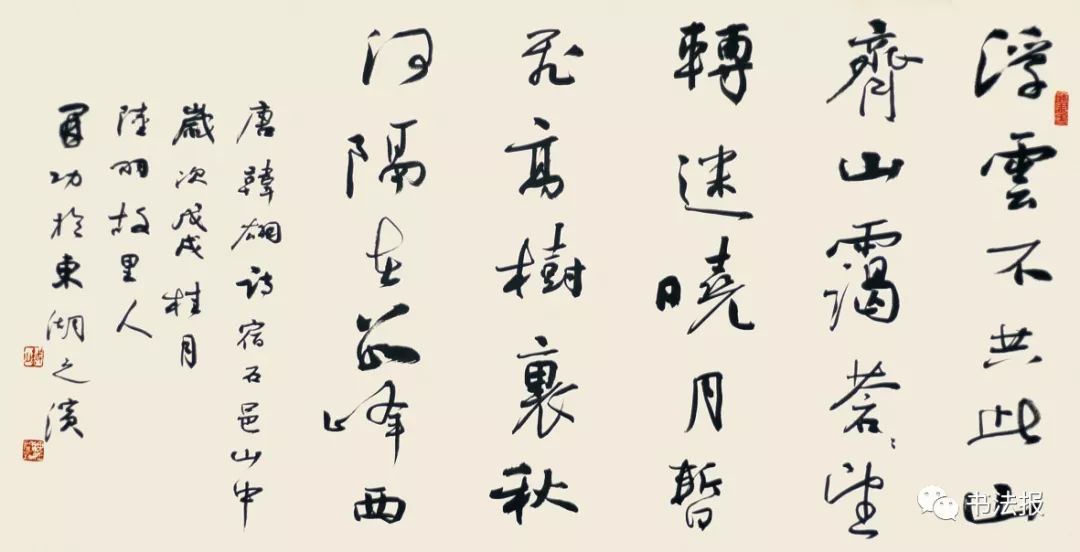 浮雲不共此山
齊山靄蒼〻望
轉迷曉月暫
飛高樹裏秋
河隔在數峰西
唐韓翃詩宿石邑山中
歲次戊戌桂月
陸羽故里人
功於東湖之濱
书法报